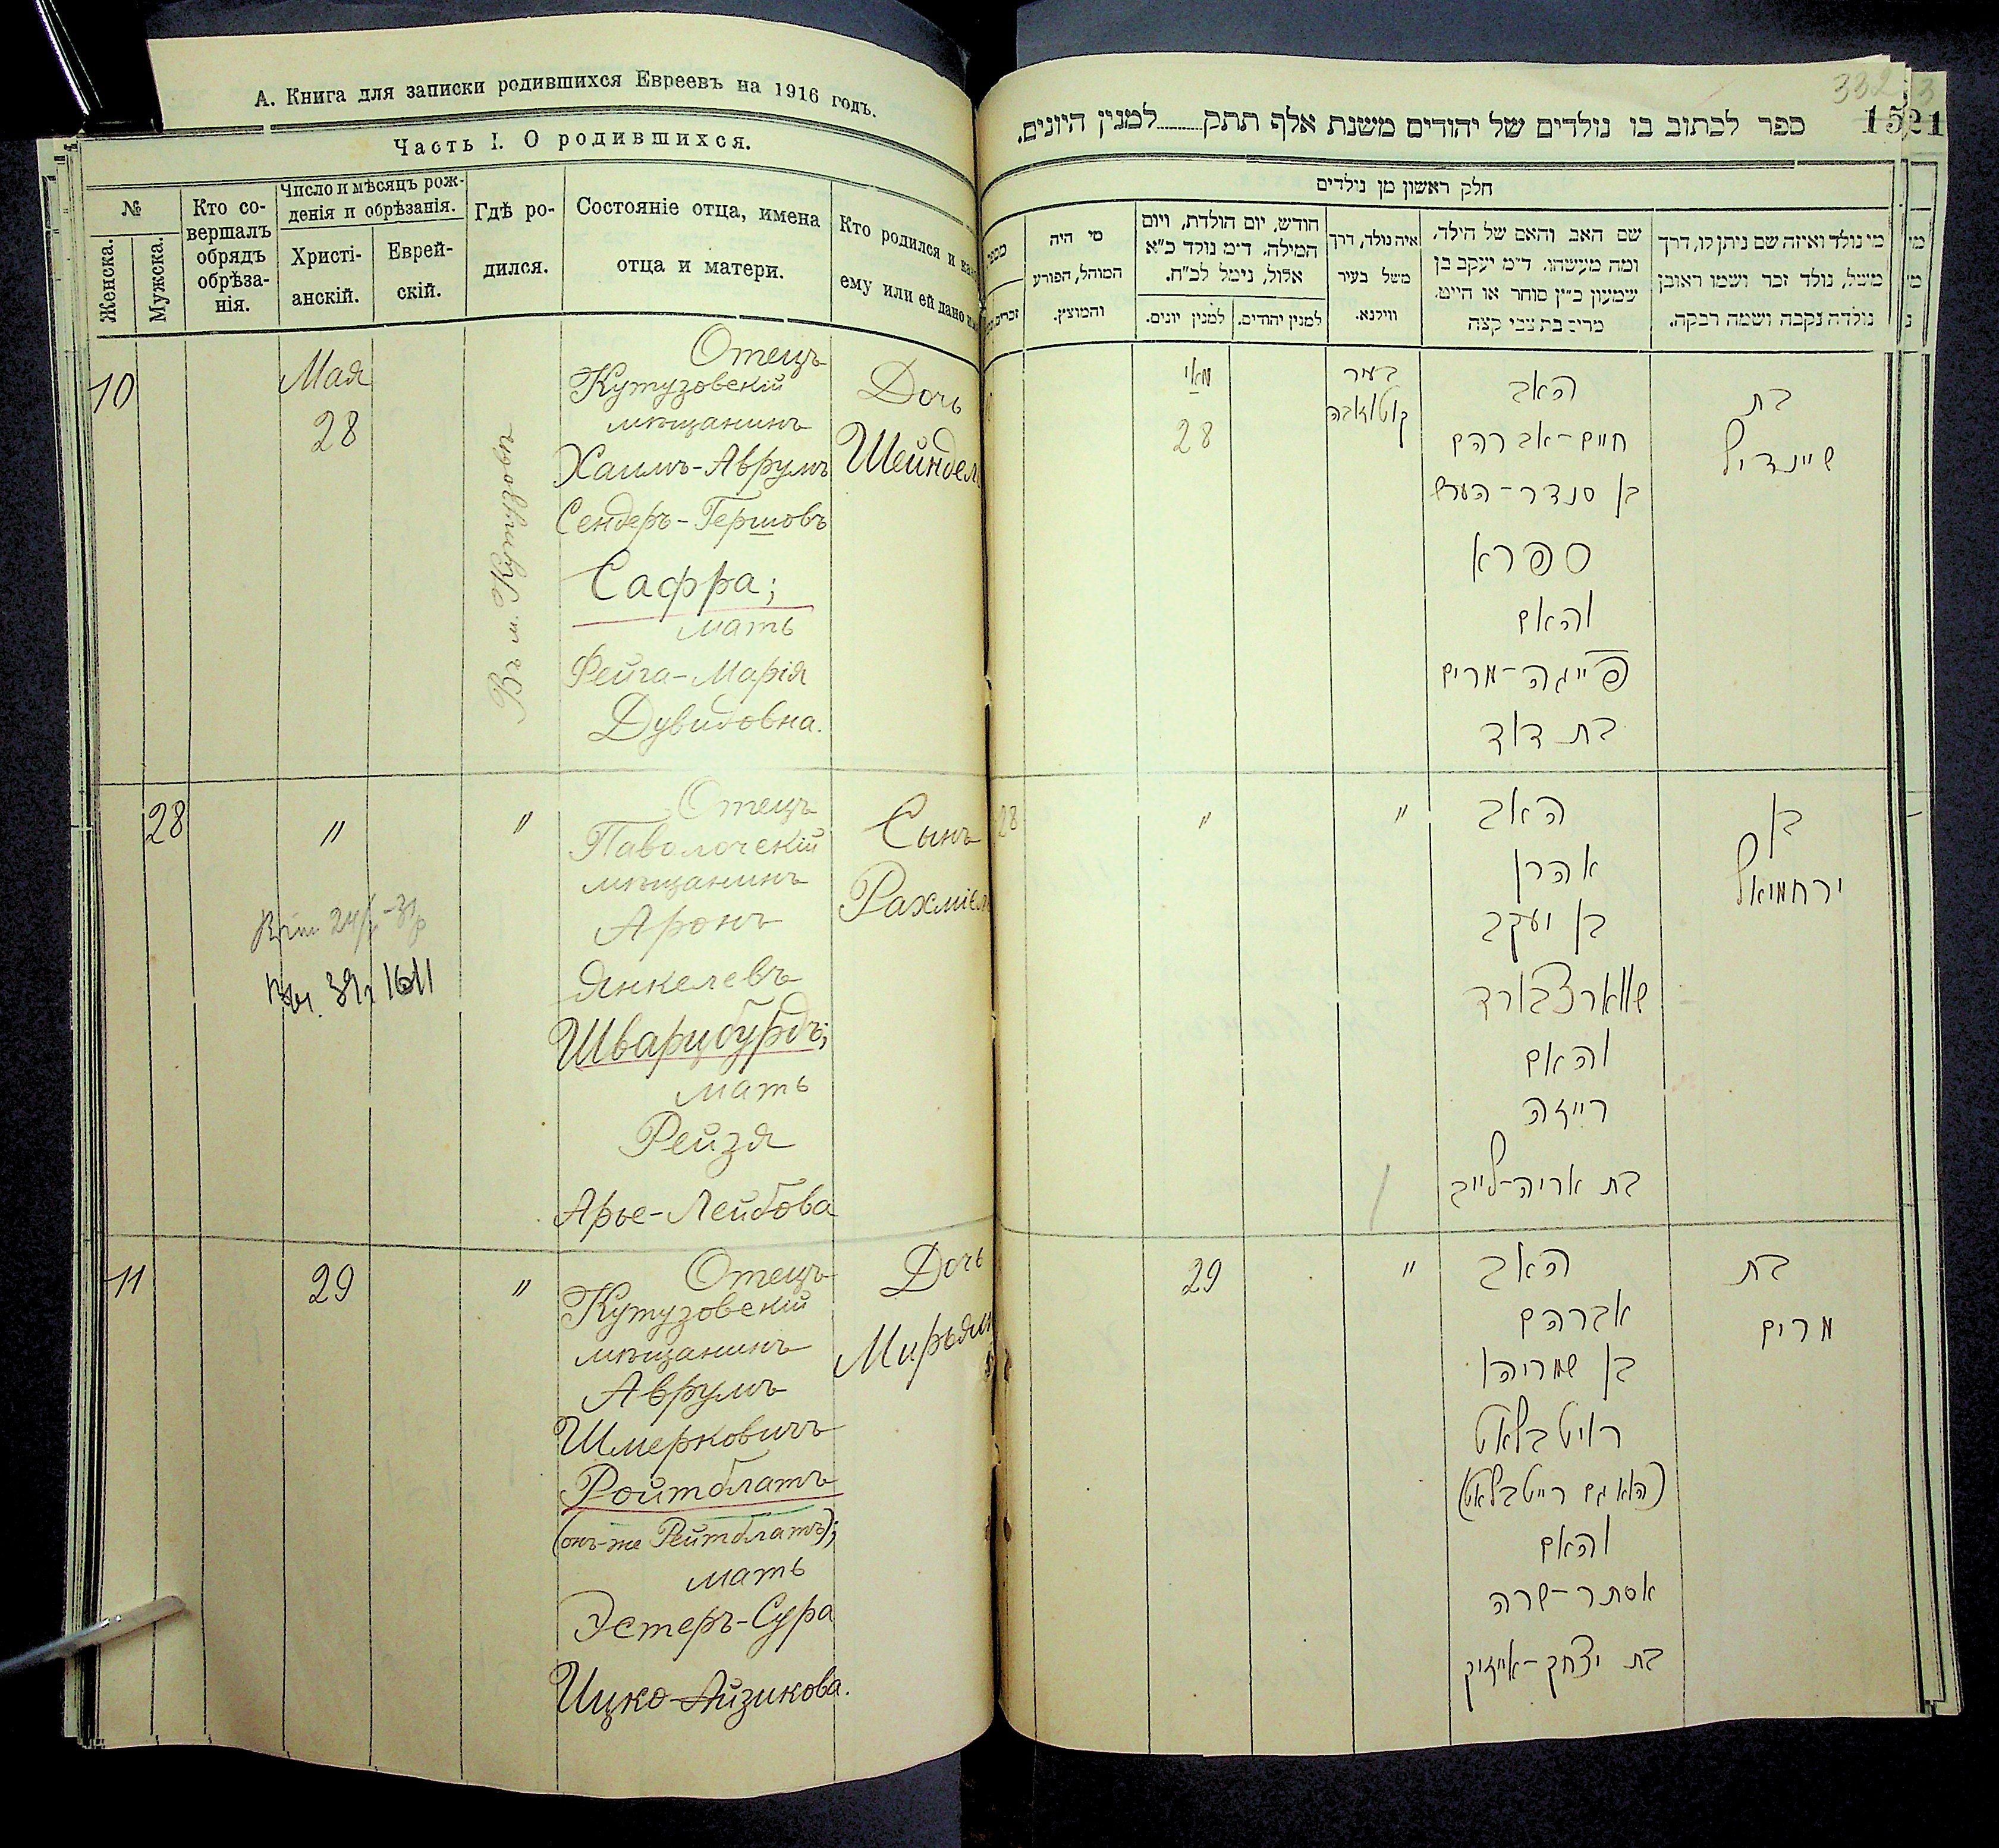 А. Книга для записки родившихся Евреевъ на 1916 годъ.
Часть I. О родившихся.
№
Женска.
Мужска.
Кто со-
вершалъ
обрядъ
обрѣза-
нія.
Число и мѣсяцъ рож-
денія и обрѣзанія.
Христі-
анскій.
Еврей-
скій.
Гдѣ ро-
дился.
Состояніе отца, имена
отца и матери.
Кто родился и
ему или ей дано
10
Мая
28
Отецъ
Кутузовскій
мѣщанинъ
Хаимъ-Аврумъ
Сендеръ-Гершовъ
Сафра;
мать
Фейга-Марія
Дувидовна.
Дочь
Шейндель
28
"
"
Отецъ
Паволочскій
мѣщанинъ
Аронъ
Янкелевъ
Шварцбурдъ;
мать
Рейзя
Арье-Лейбова
Сынъ
Рахміель
1611
11
29
"
Отецъ
Кутузовскій
мѣщанинъ
Аврумъ
Шмерковичъ
Ройтблатъ
(онъ-же Рейтблатъ);
мать
Эстеръ-Сура
Ицко-Айзикова.
Дочь
Мирьям
332
1521
ספר לכתוב בו נולדים של יהודים משנת אלף תתק למנין היונים.
חלק ראשון מן נולדים
מי היה
המוהל, הפורע
והמוצץ.
חודש, יום הולדת, ויום
המילה. ד"מ נולד כ"א
אלול, נימל לכ"ח.
למנין יונים.
למנין יהודים.
איה נולד, דרך
משל בעיר
ווילנא.
שם האב והאם של הילד,
ומה מעשהו. ד"מ יעקב בן
שמעון כ"ץ סוחר או חייט.
מרים בת צבי קצה
מי נולד ואיזה שם ניתן לו, דרך
משל, נולד זכר ושמו ראובן
נולדה נקבה ושמה רבקה.
מאי
28
בעיר
קוטוזובה
האב
חיים-אברהם
בן סנדר-הערש
ספרא
והאם
פייגה-מרים
בת דוד
בת
שיינדיל
28
"
"
האב
אהרן
בן יעקב
שווארצבורד
והאם
רייזה
בת אריה-לייב
בן
ירחמיאל
29
"
האב
אברהם
בן שמריהו
רויטבלאט
(הוא גם רייטבלאט)
והאם
אסתר-שרה
בת יצחק-אייזיק
בת
מרים